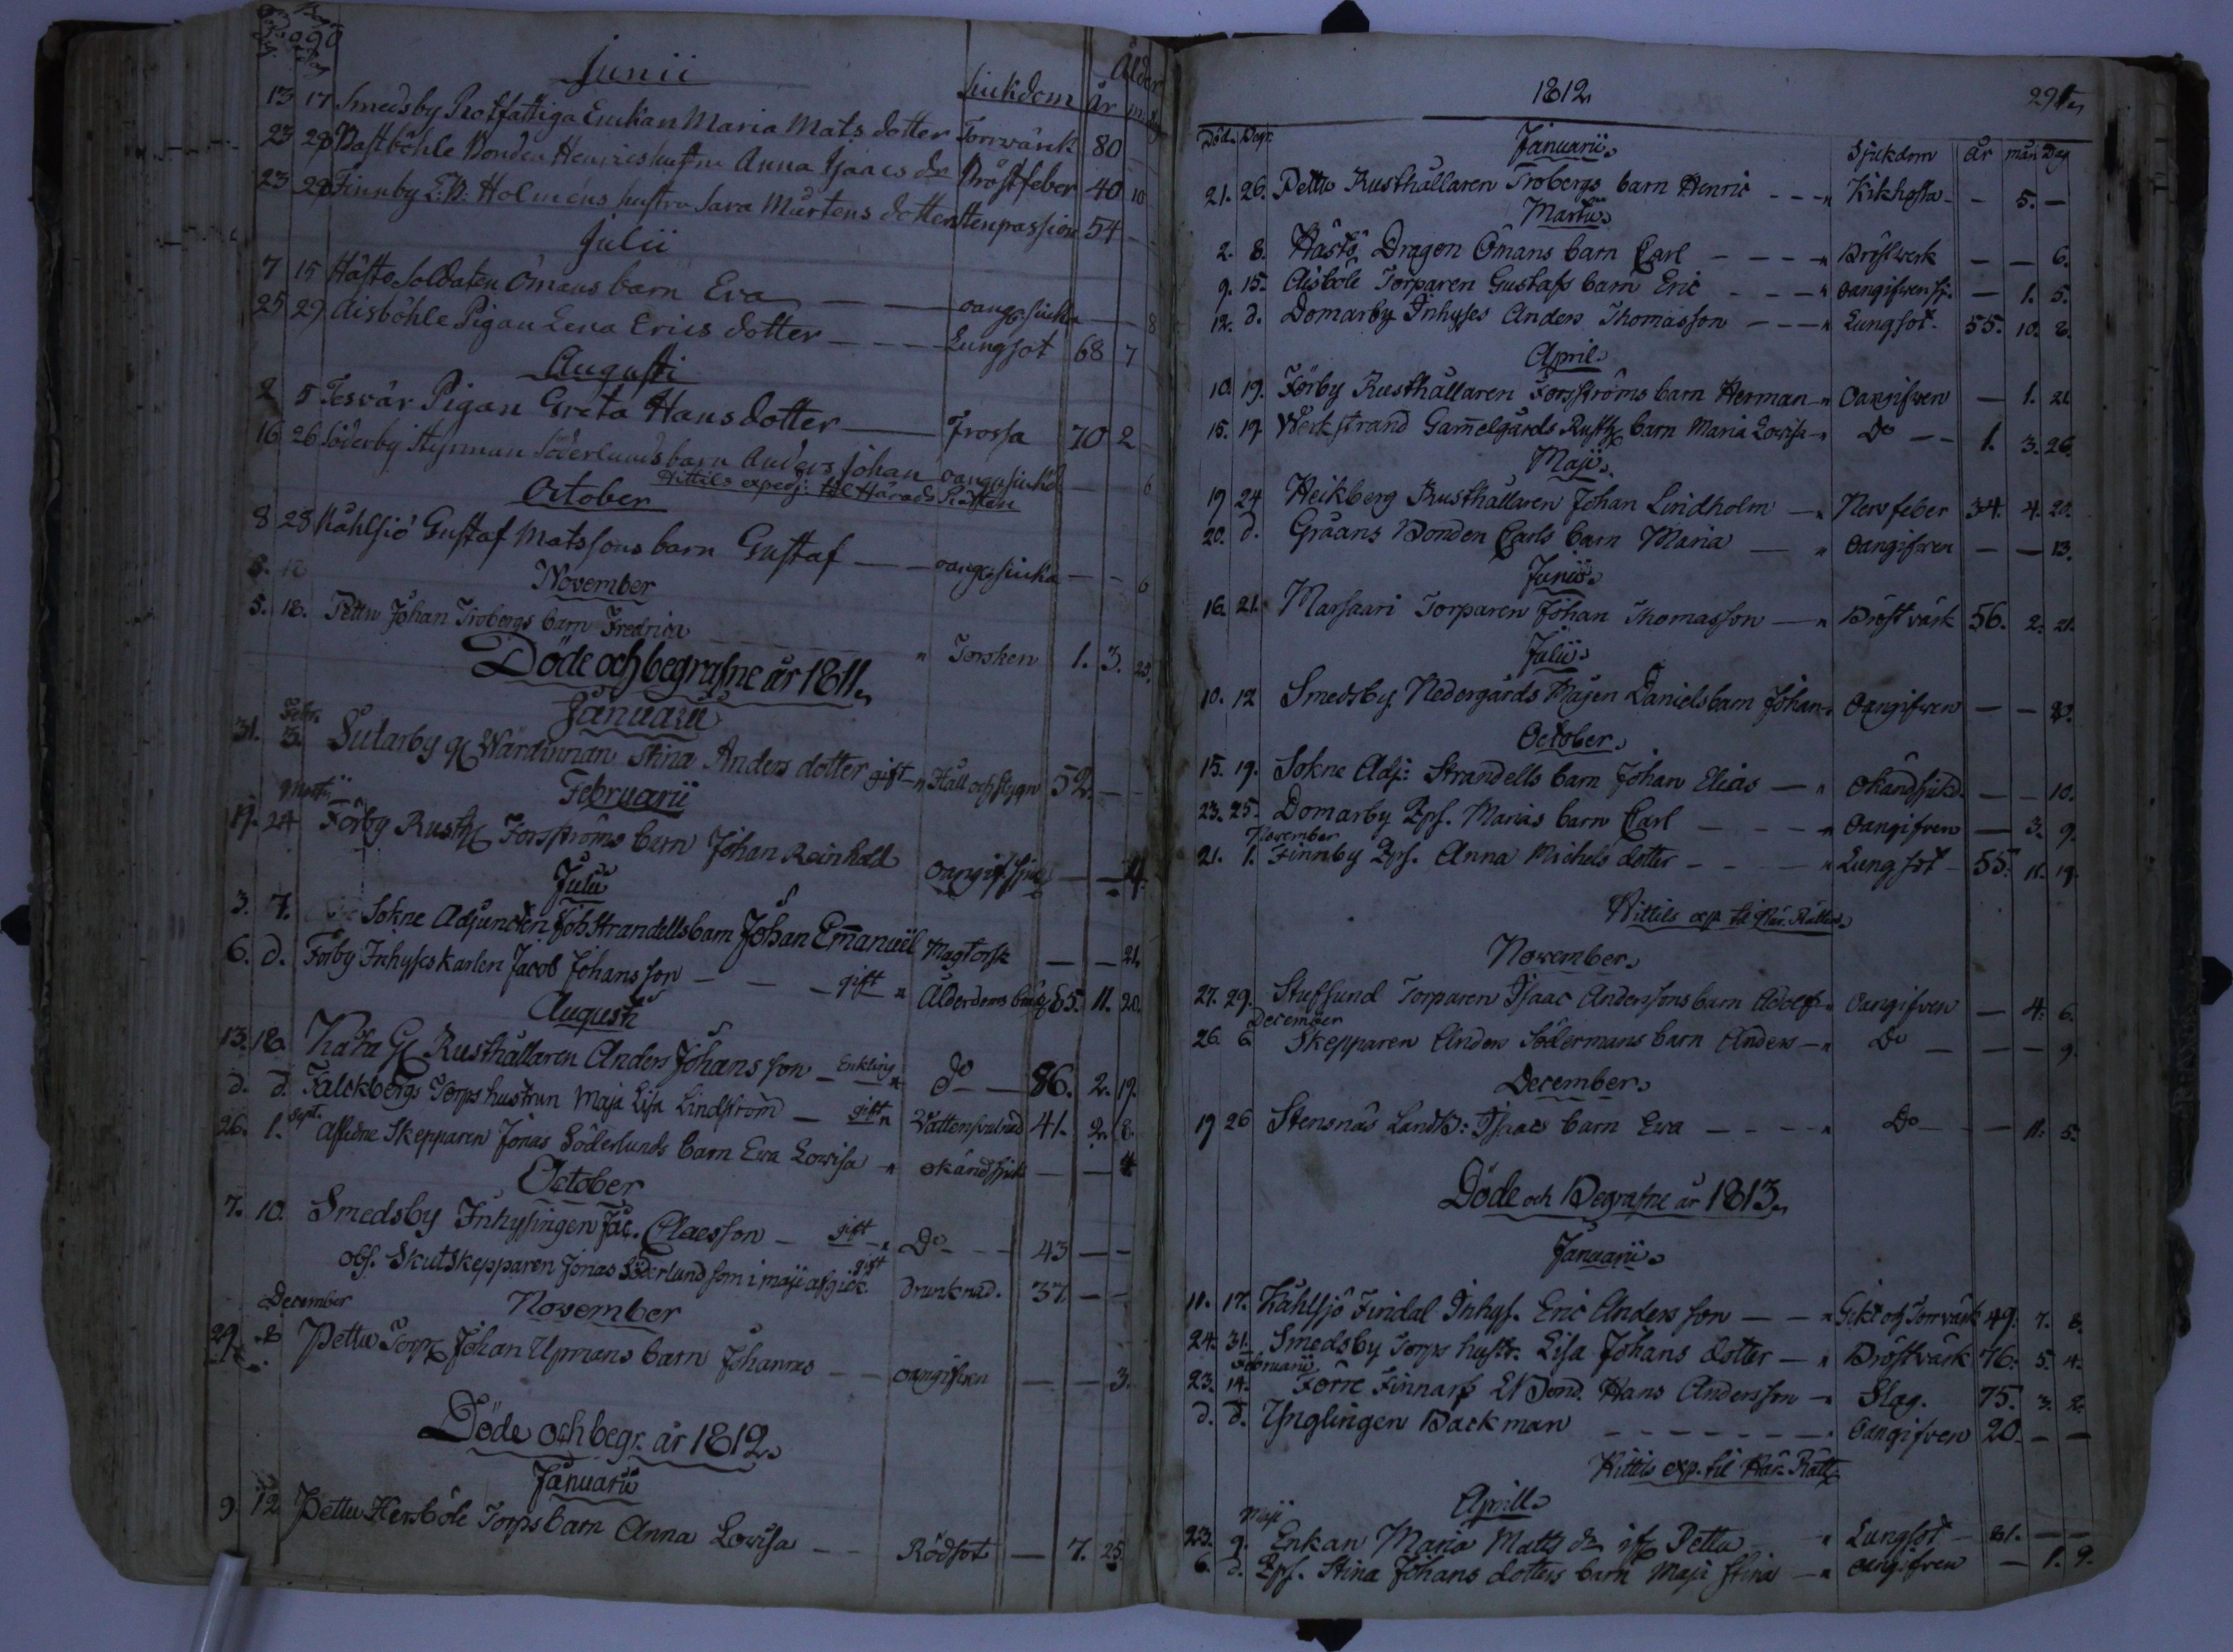 290
Junii
Siukdom år
Ålder
13 17 Smedsby Rotfattiga Enckan Maria Mats dotter Torrwärck 80
23 28 Bastböhle Bonden Henrics hustru Anna Isaacs dr Bröstfeber 40 10
23 28 Finnby Holmens hustru Sara Mårtens dotter Stenpassion 54
Julii
7 15 Hästö Soldaten Ömans barn Eva oangs siukd 8
25 29 Aisböhle Pigan Lena Erics dotter Lungsot 68 7
Augusti
2 5 Tesvär Pigan Greta Hans dotter Frossa 70 2
16 26 Söderby Styrman Söderlunds barn Anders Johan oangs siukd 6
Hittils exped: till Härads Rätten
October
8 28 Kåhlsiö Gustaf Matssons barn Gustaf oangs siukd 6
5. 18
November
5. 18. Pettu Johan Trobergs barn Fredrica Torsken 1. 3. 25.
Döde och begrafne år 1811.
Januarii
31. Febr. 3. Sutarby Wärdinnan Stina Anders dotter gift Håll och stygn 52.
Februarii
Martii
19. 24 Förby Rusth. Forsströms barn Johan Reinhold oangif. siukd 4.
Julii
3. 7. Sokne Adjuncten Joh Strandells barn Johan Emanuël Magtorsk 21.
6. d. Förby Inhyses karlen Jacob Johansson gift Ålderdoms 85. 11. 20.
Augusti
13. 18. Kåra G Rusthållaren Anders Johansson Enkling do 86. 2. 19.
d. d. Falckbergs Torps hustrun Maja Lisa Lindström gift Vattensvulnad 41. 2. 8.
26. 1. Sept. Aflidne Skepparen Jonas Söderlunds barn Ewa Lowisa okänd sjuk 4
October
7. 10. Smedsby Inhysingen Jac. Claesson gift Do 43
obs. Skutskepparen Jonas Söderlund som i maji afgick gift Drunknad. 37.
December
November
29. 8 Pettu Torp. Johan Upmans barn Johannes oangifven 3.
Döde och begr. år 1812.
Januarii
9 12 Pettu Hersböle Torps barn Anna Lowisa Rödsot 7. 25
1812. 291
Död. Begr. Januarii. Sjukdom år mån Dag
21. 26. Pettu Rusthållaren Trobergs barn Henric Kikhosta 5.
Martii.
2. 8. Hästö Dragon Ömans barn Carl Bröstwerk 6.
9. 15. Aisböle Torparen Gustafs barn Eric oangifwen sj. 1. 5.
12. d. Domarby Inhyses Anders Thomasson Lungsot. 55. 10. 8.
April.
10. 19. Förby Rusthållaren Forsströms barn Herman Oangifwen 1. 21
15. 19. Werkstrand Gam̄elgårds Rusth. barn Maria Lowisa Do 1. 3. 26.
Maji.
19 24 Heikberg Rusthållaren Johan Lindholm Nerv feber 34. 4. 20.
20. d. Gråans Bonden Carls barn Maria Oangifwen 13.
Junii.
16. 21. Marsaari Torparen Johan Thomasson Bröstvärk 56. 2. 21.
Julii.
10. 12 Smedsby Nedergårds Mågen Daniels barn Johan Oangifwen 8.
October.
15. 19. Sokne Adj: Strandells barn Johan Elias Okänd sjukd. 10.
23. 25. Domarby Marias barn Carl Oangifven 3. 9.
November
21. 1. Finnby Anna Michels dotter Lungsot 55. 11. 19.
Hittils exp. til Här. Rätten.
November.
27. 29. Stufsund Torparen Isaac Anderssons barn Adolf Oangifven 4. 6.
December
26. 6. Skepparen Anders Södermans barn Anders Do 9.
December.
19 26 Stensnäs LandB: Isaacs barn Ewa Do 11. 5.
Döde och Begrafne år 1813.
Januarii.
11. 17. Kåhlsjö Findal Inhys. Eric Andersson Gikt och Torrvärk 49. 7. 8.
24. 31. Smedsby Torps hustr. Lisa Johans dotter Bröstvärk 76. 5. 4.
Februarii
23. 14. Förre Finnarf Bond. Hans Andersson Slag. 75. 3. 2.
d. d. Ynglingen Backman Oangifven 20.
Hittils exp. til Här. Rätt
Aprill.
Maji
23. 9. Enkan Maria Matts dr if. Pettu Lungsot 81.
6. d. Stina Johans dotters barn Maja Stina oangifven 1. 9.